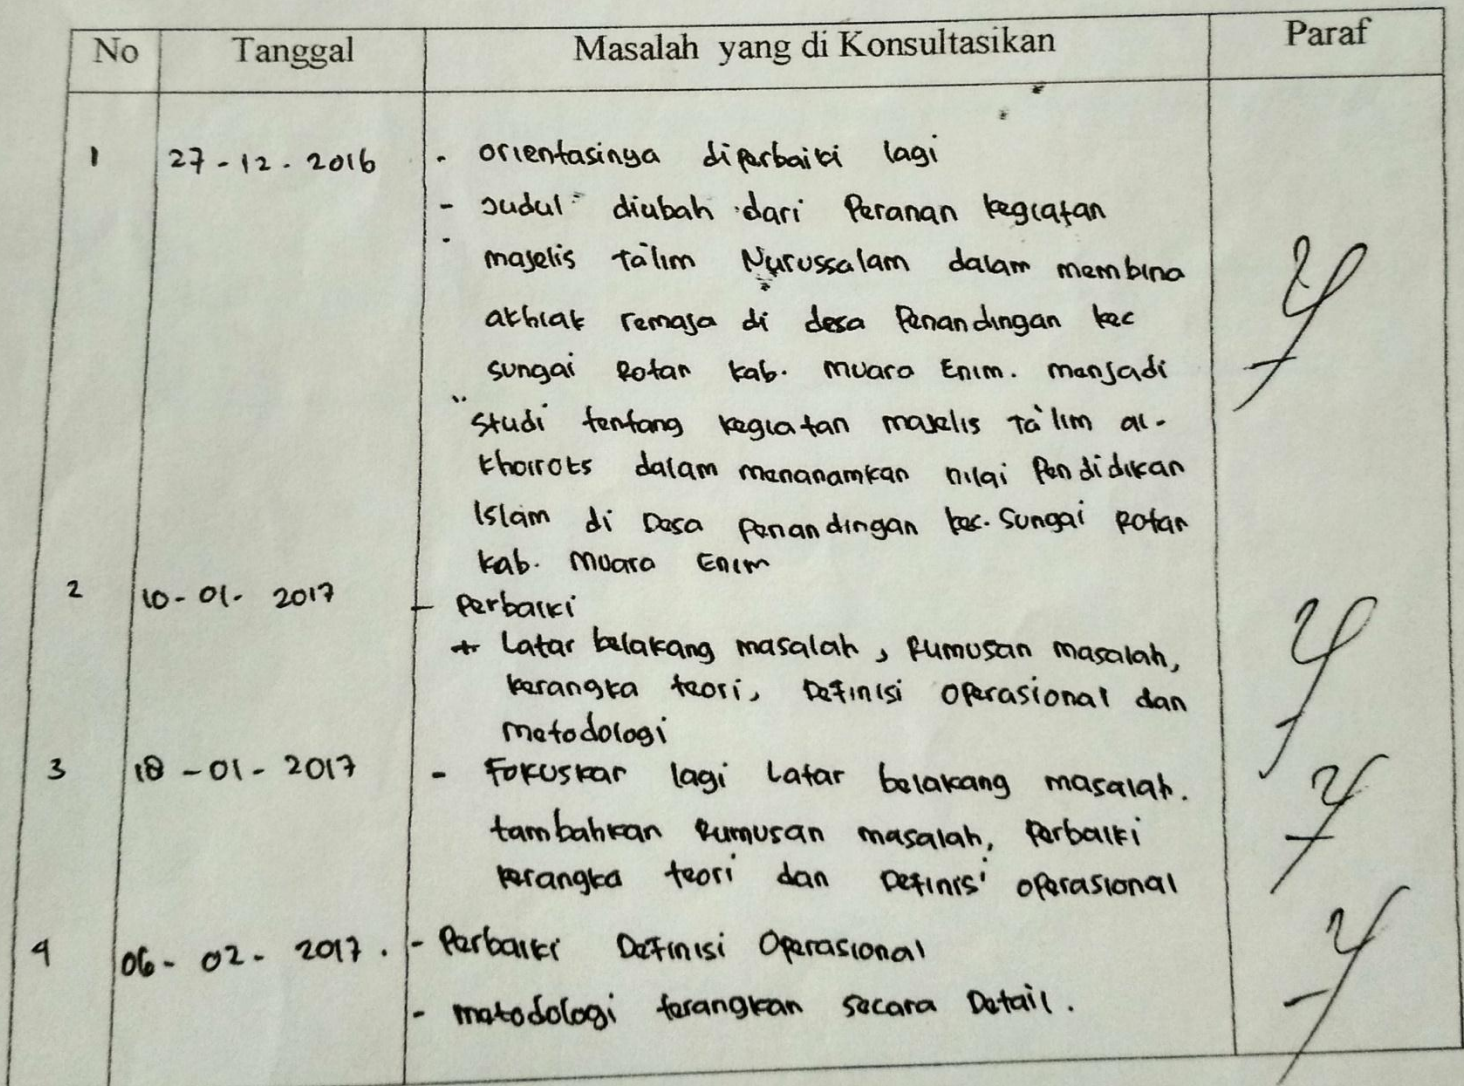 No Tanggal Masalah yang di Konsultasikan Paraf
1 27-12-2016 - orientasinya diperbaiki lagi
- Judul diubah dari Peranan kegiatan
majelis ta'lim Nurussalam dalam membina
akhlak remaja di desa Penandingan kec
sungai Rotan kab. muara Enim. menjadi
"studi tentang kegiatan majelis Ta'lim al-
khoirots dalam menanamkan nilai Pendidikan
Islam di Desa Penandingan kec. Sungai Rotan
kab. muara Enim
2 10-01-2017 - Perbaiki
+ Latar belakang masalah, Rumusan masalah,
kerangka teori, Definisi Operasional dan
metodologi
3 18-01-2017 - Fokuskan lagi Latar belakang masalah.
tambahkan Rumusan masalah, Perbaiki
kerangka teori dan Definisi operasional
4 06-02-2017. - Perbaiki Definisi Operasional
- metodologi terangkan secara Detail.